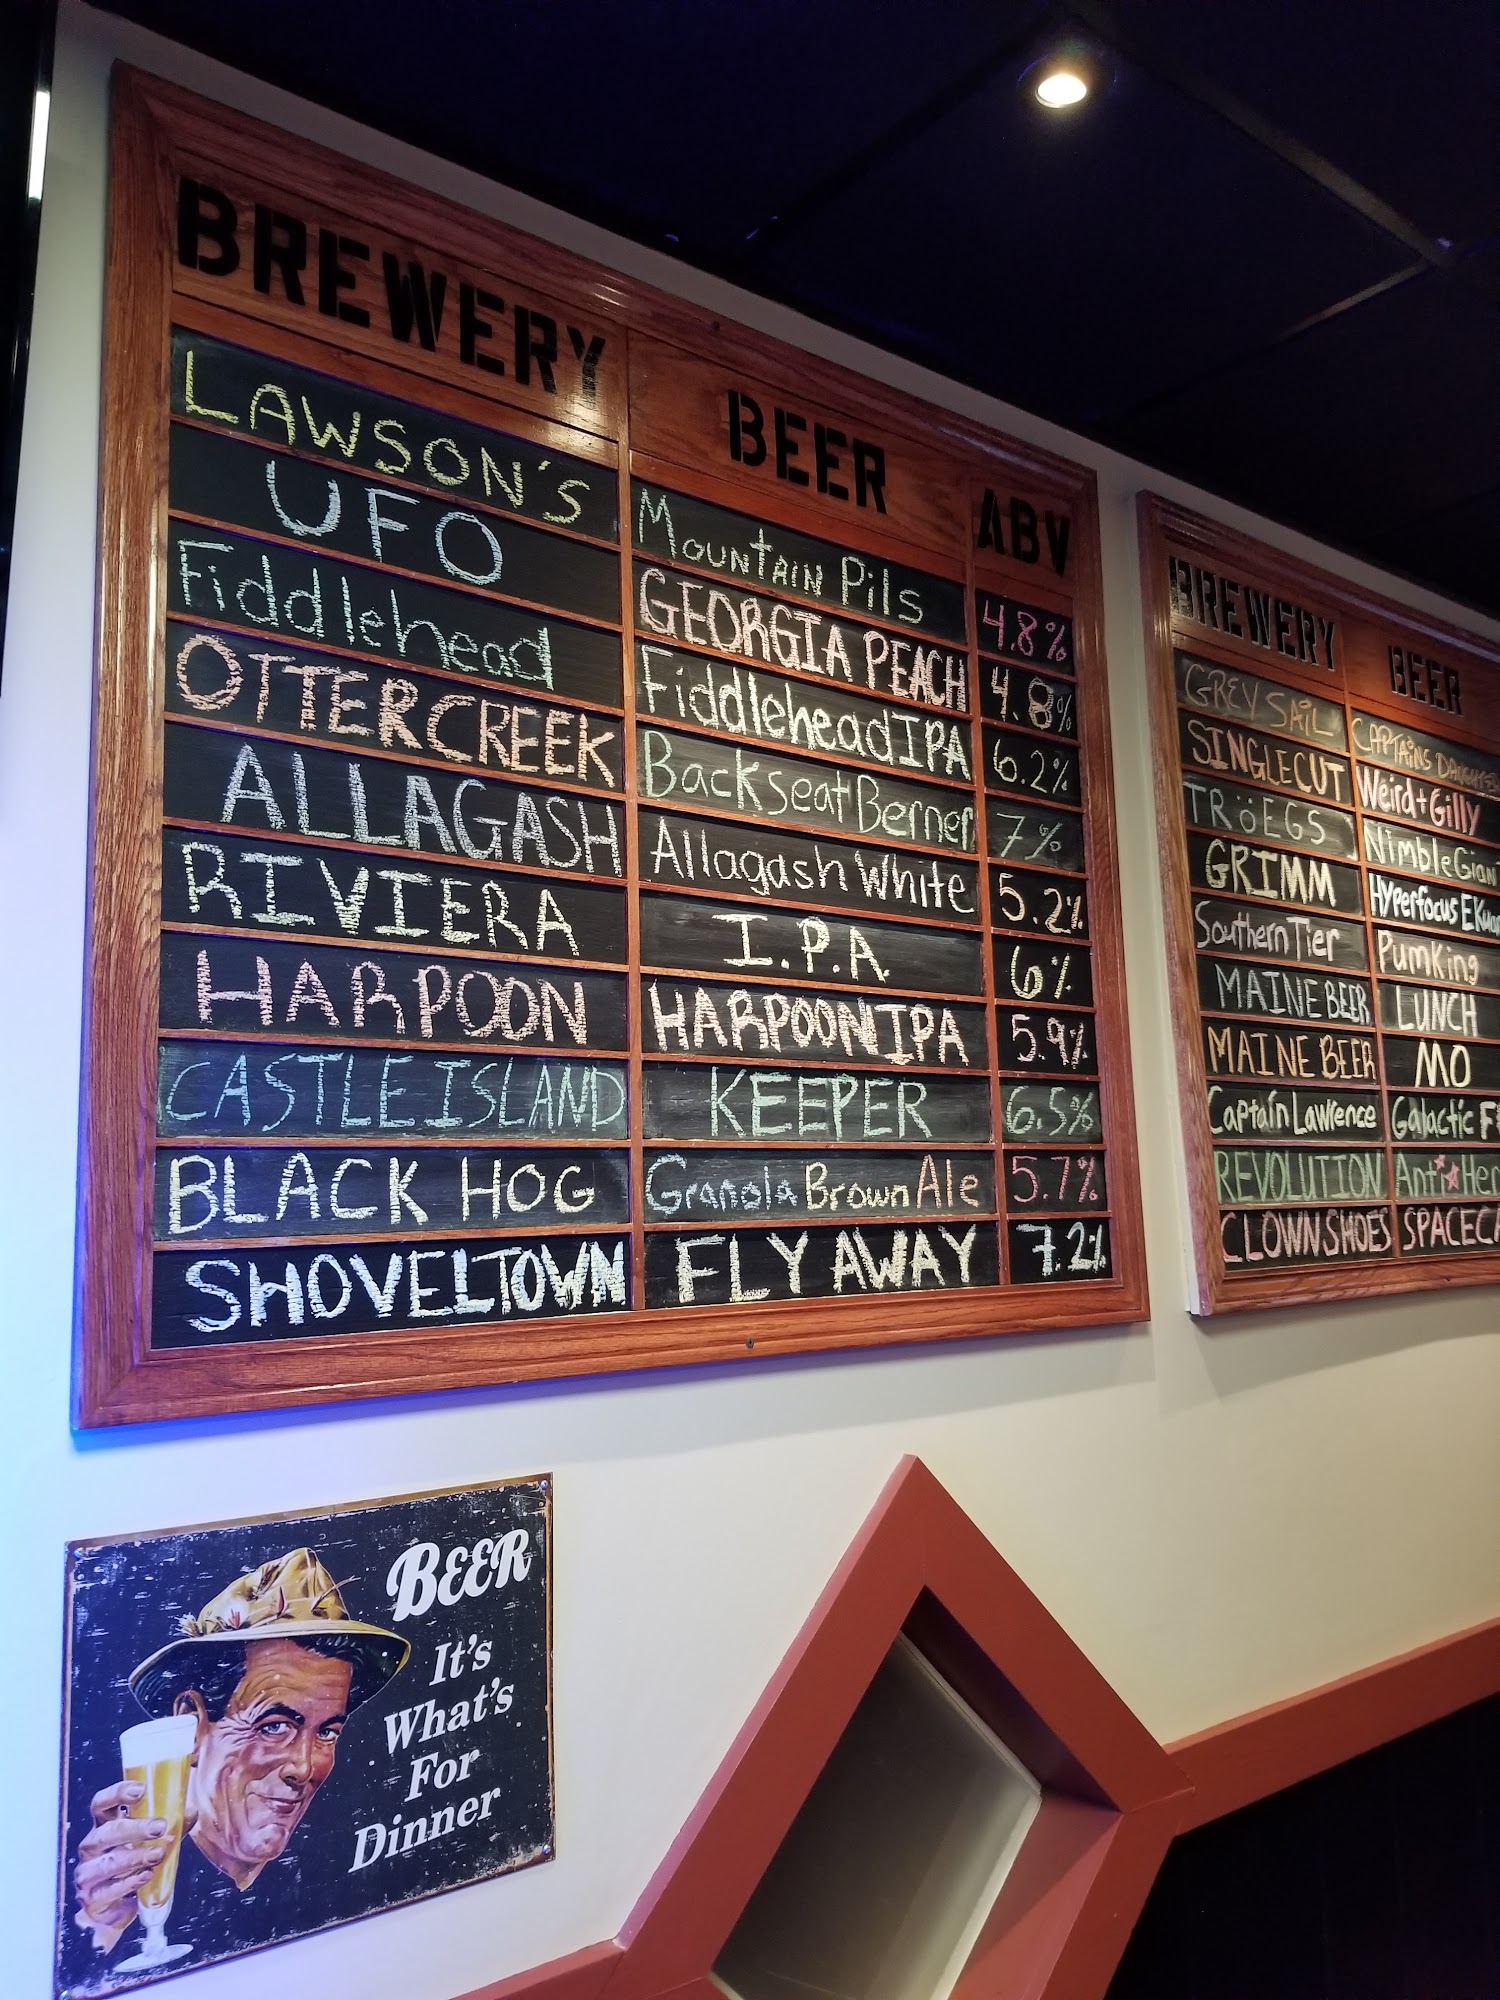 BREWERY BEER ABV
LAWSON'S Mountain Pils 4.8%
UFO GEORGIA PEACH 4.8%
Fiddlehead Fiddlehead IPA 6.2%
OTTER CREEK Backseat Berner 7%
ALLAGASH Allagash White 5.2%
RIVIERA I.P.A. 6%
HARPOON HARPOON IPA 5.9%
CASTLE ISLAND KEEPER 6.5%
BLACK HOG Granola Brown Ale 5.7%
SHOVELTOWN FLY AWAY 7.2%
BREWERY BEER
GREY SAIL CAPTAINS
SINGLECUT Weird + Gilly
TRöEGS Nimble Giant
GRIMM Hyperfocus
Southern Tier Pumking
MAINE BEER LUNCH
MAINE BEER MO
Captain Lawrence Galactic
REVOLUTION Anti Her
CLOWN SHOES SPACECA
BEER
It's
What's
For
Dinner